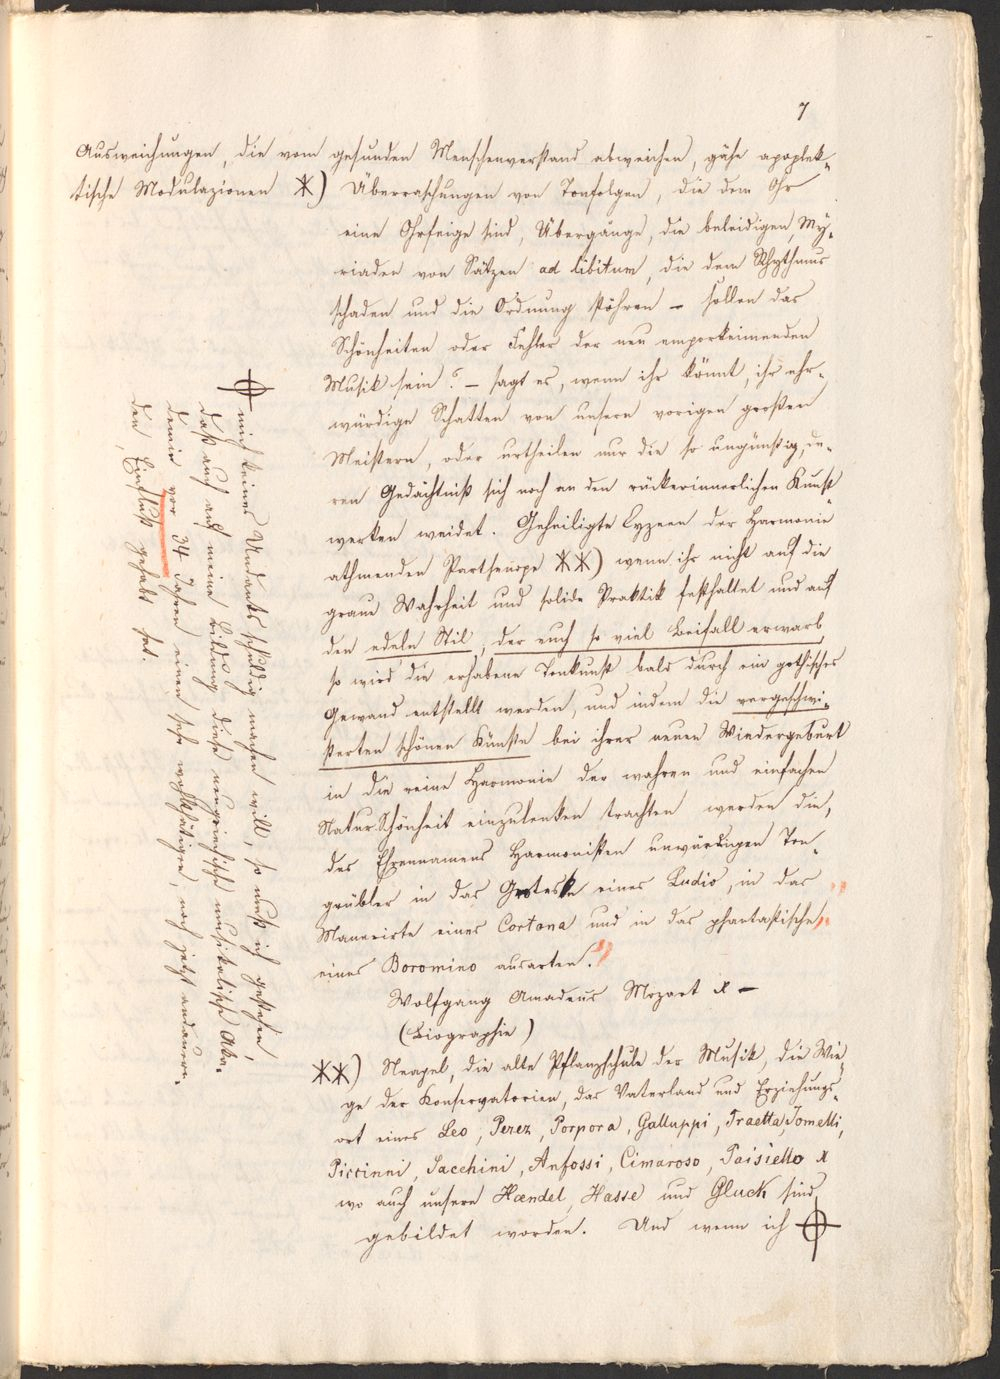 7
Ausweichungen, die vom gesunden Menschenverstand abweichen, gähe apoplek-
tische Modulazionen *) Überraschungen von Tonfolgen, die dem Ohr
eine Ohrfeige sind, Übergänge, die beleidigen, My-
riaden von Sätzen ad libitum, die dem Rhythmus
schaden und die Ordnung stöhren – sollen das
Schönheiten oder Fehler der neu emporkeimenden
Musik sein? – sagt es, wenn ihr könnt, ihr ehr-
würdige Schatten von unsern vorigen großen
Meistern, oder urtheilen nur die so ungünstig, de-
ren Gedächtniß sich noch an den rückerinnerlichen Kunst-
werken weidet. Geheiligte Lyzeen der Harmonie
athmenden Parthenope **) wenn ihr nicht auf die
graue Wahrheit und solide Praktik festhaltet und auf
den edeln Stil, der euch so viel Beifall erwarb
so wird die erhabene Tonkunst bald durch ein gothisches
Gewand entstellt werden, und indem die vergeschwi-
sterten schönen Künste bei ihrer neuen Wiedergeburt
in die reine Harmonie der wahren und einfachen
Natur-Schönheit einzulenken trachten werden die,
des Ehrennamens Harmonisten unwürdigen Ton-
grübler in das Groteske eines Ludio, in das
Manierirte eines Cortona und in das phantastische
eines Boromino ausarten.
Wolfgang Amadeus Mozart x –
(Biographie)
**) Neapel, die alte Pflanzschule der Musik, die Wie-
ge der Konservatorien, das Vaterland und Erziehungs-
ort eines Leo, Perez, Porpora, Galluppi, Traetta, Jomelli,
Piccinni, Sacchini, Anfossi, Cimaroso, Paisiello x
wo auch unsere Hændel, Hasse und Gluck sind
gebildet worden. Und wenn ich
mich keines Undanks schuldig machen will, so muß ich gestehen,
daß auch auf meine Bildung diese neugriechische musikalische Aka-
demie vor 34 Jahren einen sehr wohlthätigen, noch jetzt andauern-
den, Einfluß gehabt hat.